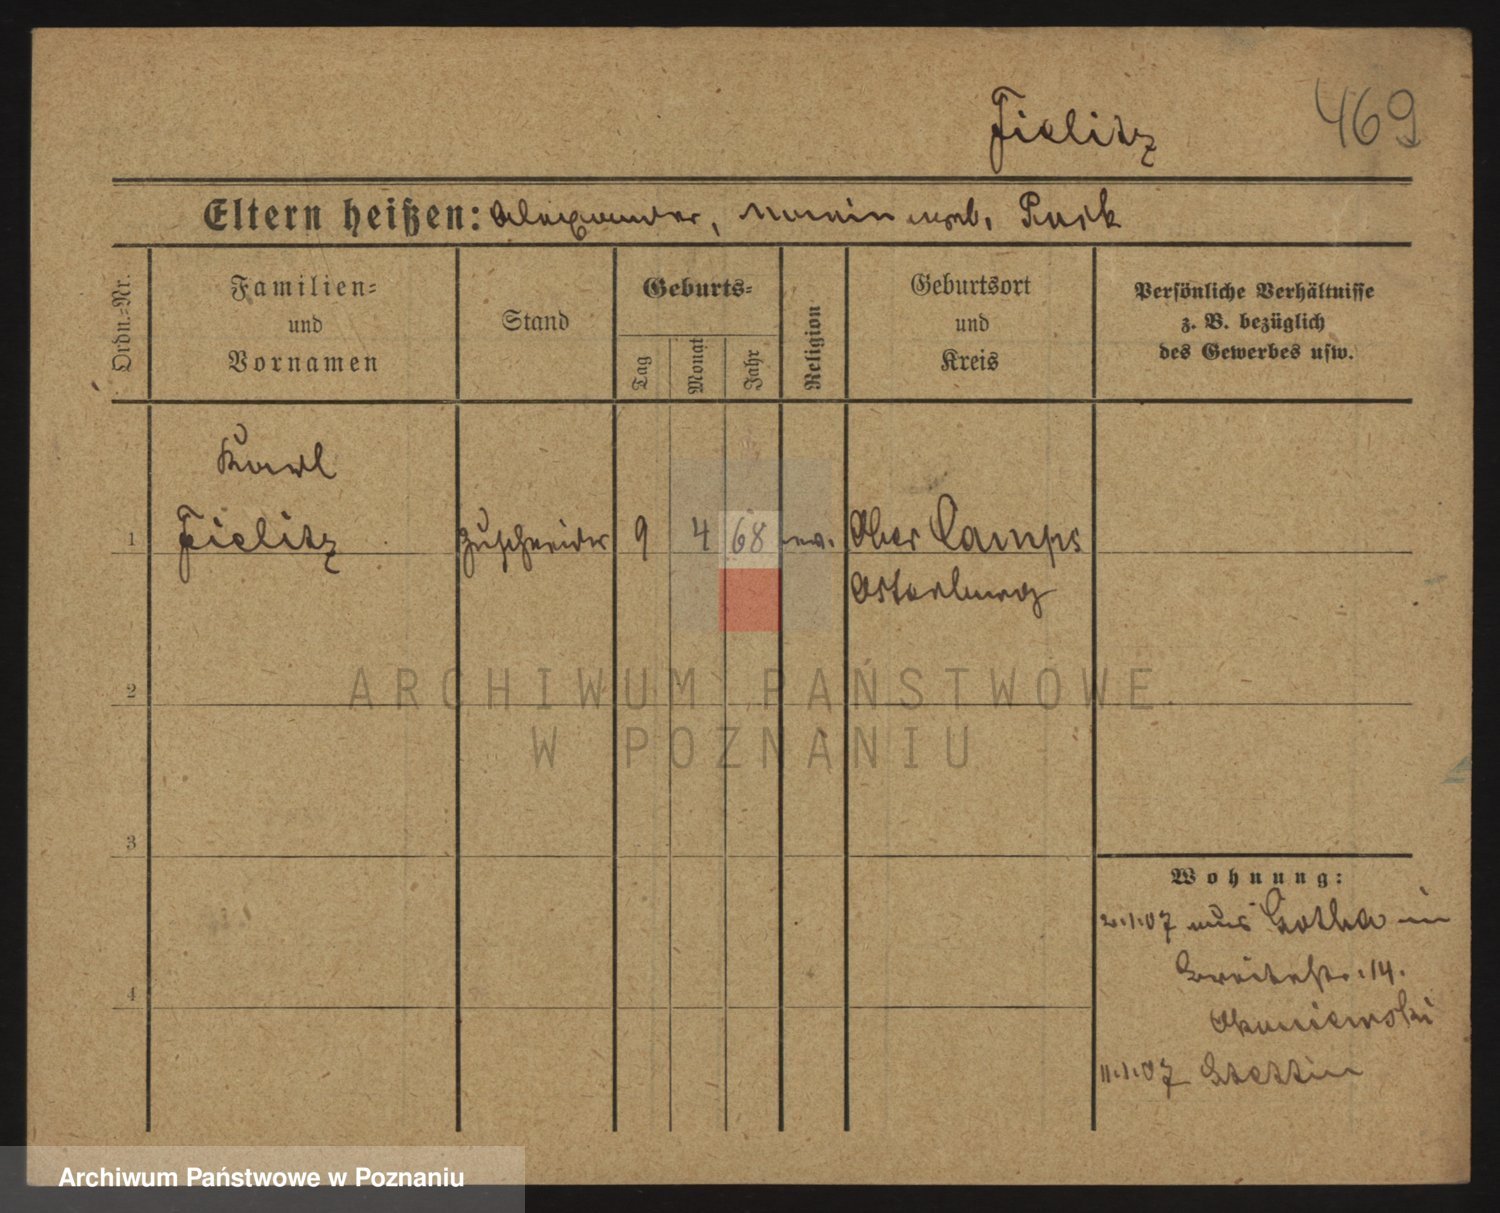 469
Fielitz
Eltern heißen: Alexander, geb.
Ordn.=Nr.
Familien=
und
Vornamen
Stand
Geburts=
Tag
Monat
Jahr
Religion
Geburtsort
und
Kreis
Persönliche Verhältnisse
z. B. bezüglich
des Gewerbes usw.
Karl
1 Fielitz Zuschneider 9 4 68 ev. Ober Camps
Osterburg
2
3
4
Wohnung:
2.1.07 aus Gotha in
Breitestr. 14.
Okoniewski
11.1.07 Stettin
ARCHIWUM PAŃSTWOWE
W POZNANIU
Archiwum Państwowe w Poznaniu